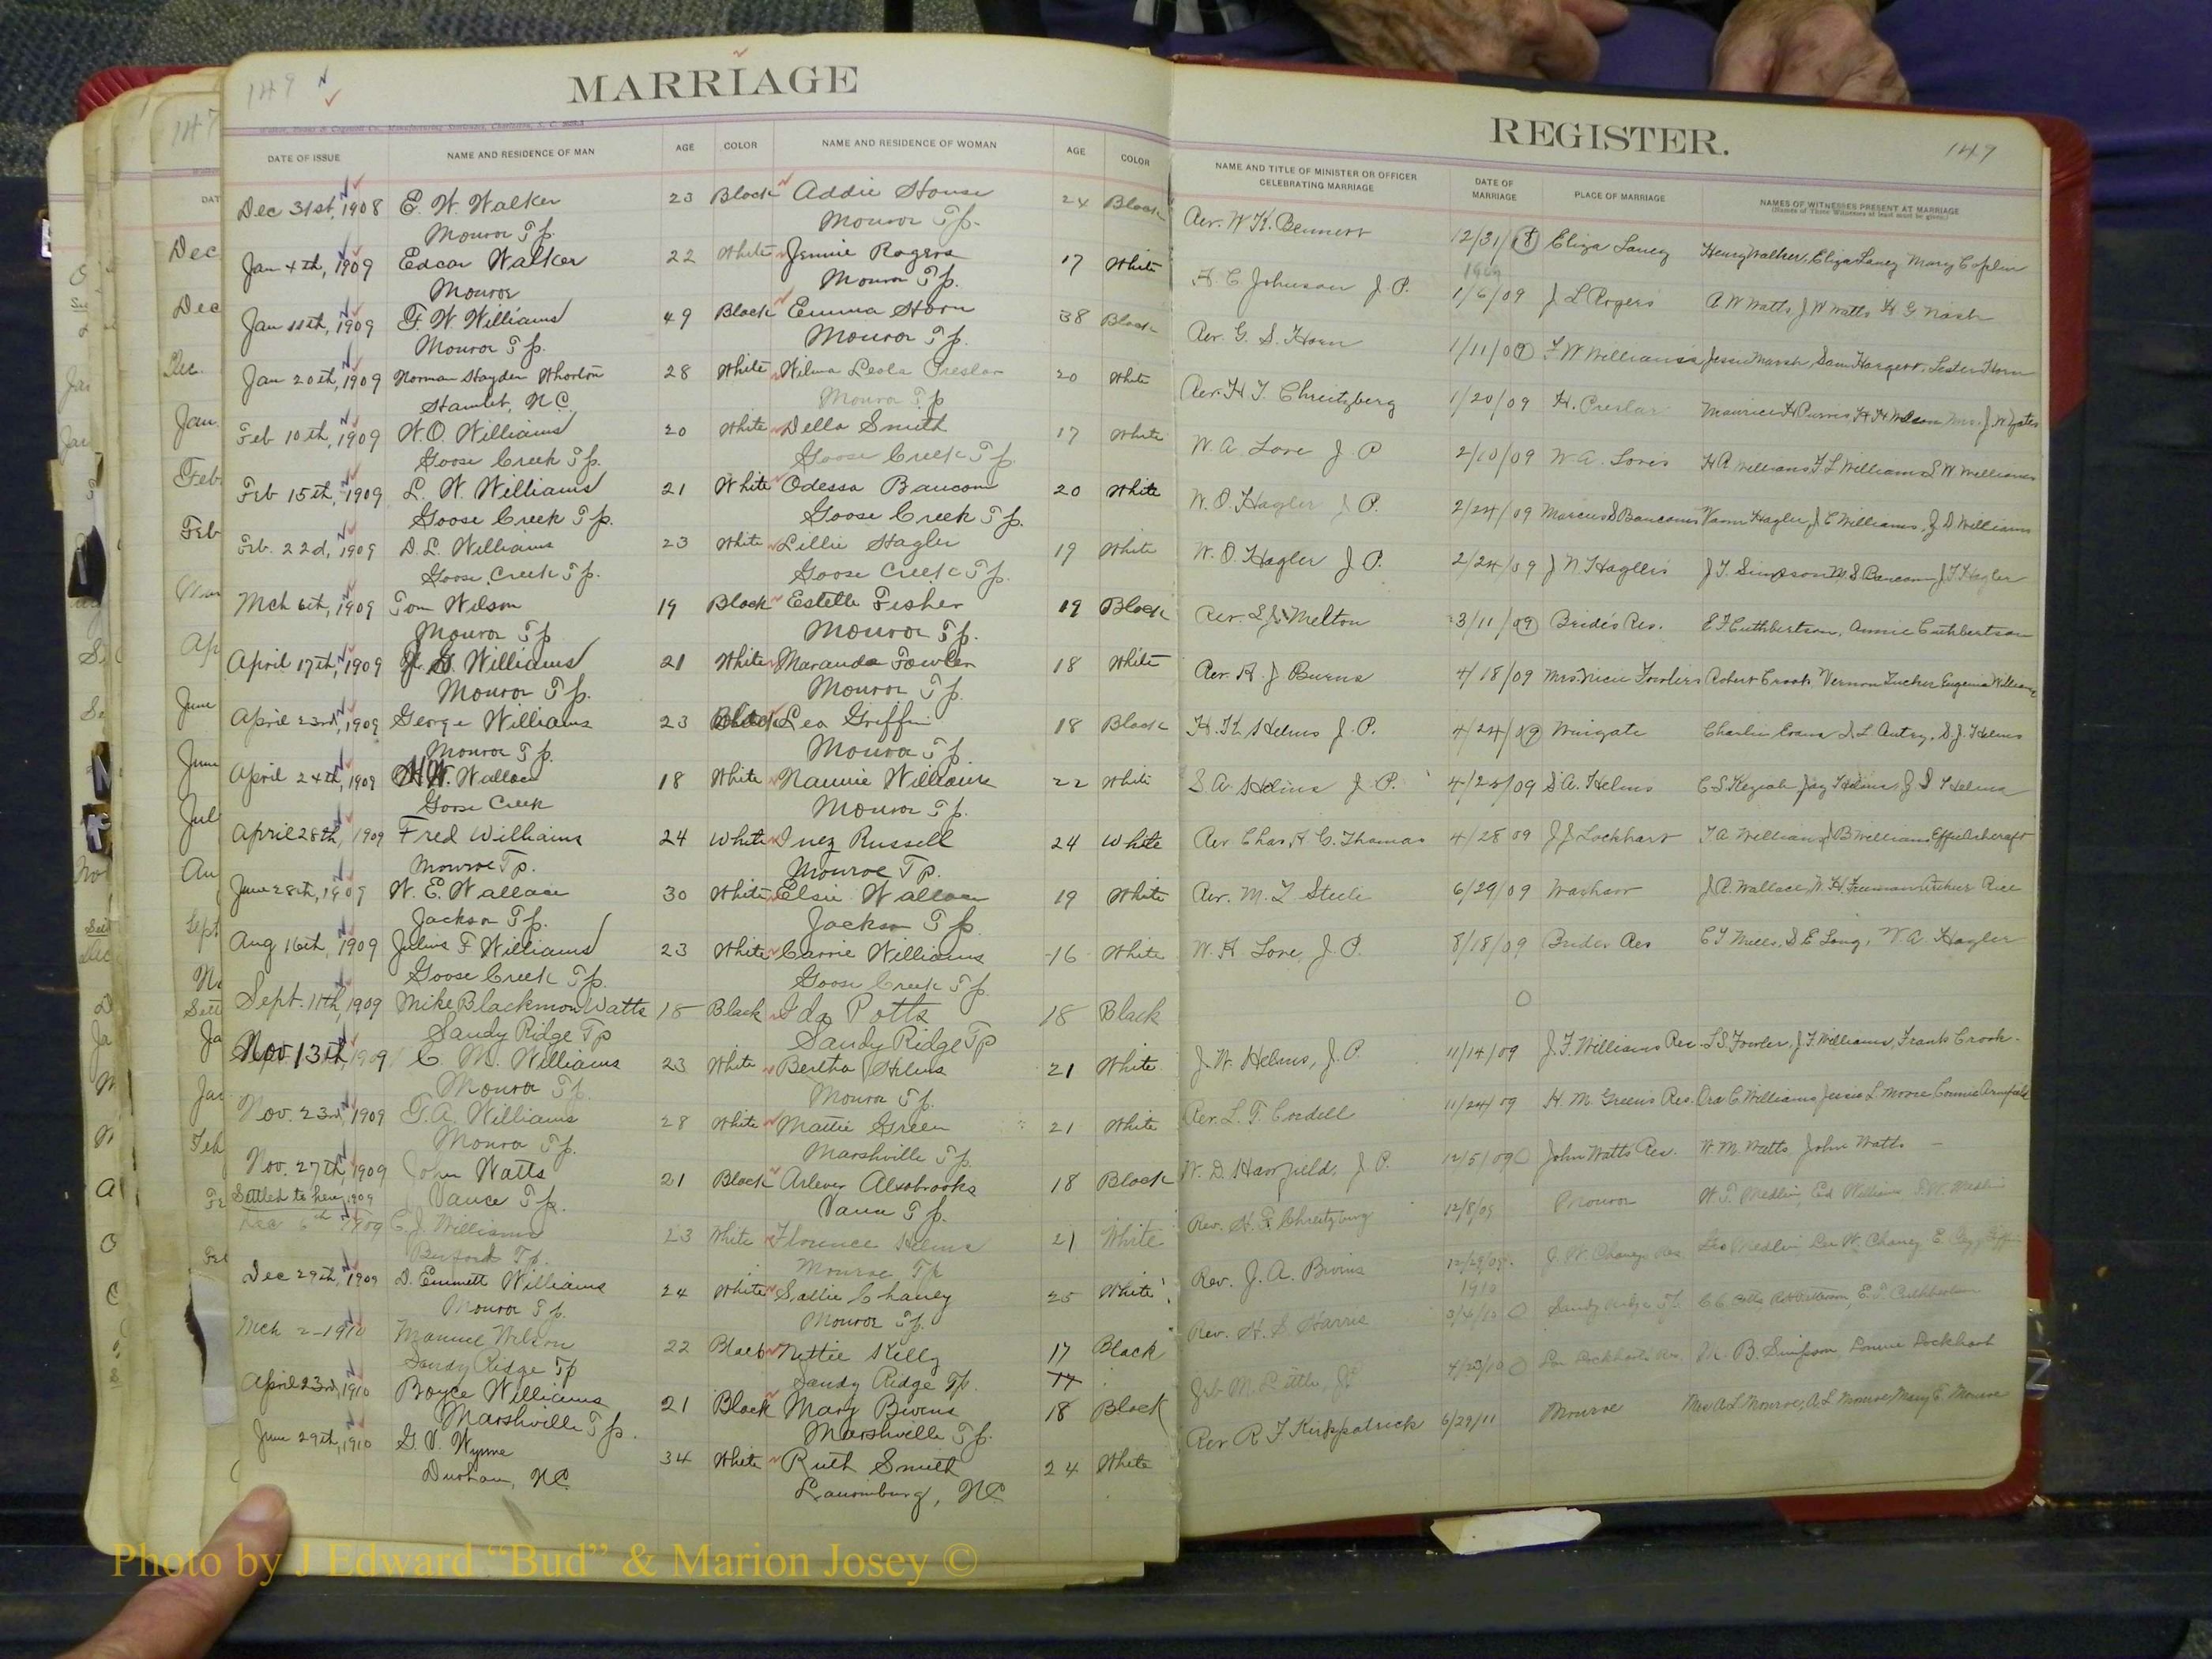 149
MARRIAGE
DATE OF ISSUE NAME AND RESIDENCE OF MAN AGE COLOR NAME AND RESIDENCE OF WOMAN AGE COLOR
Dec 31st, 1908 E. W. Walker 23 Black Addie House 24 Black
Monroe Tp. Monroe Tp.
Jan 4th, 1909 Edcar Walker 22 White Jennie Rogers 17 White
Monroe Monroe Tp.
Jan 11th, 1909 F. W. Williams 49 Black Emma Horn 38 Black
Monroe Tp. Monroe Tp.
Jan 20th, 1909 Norman Hayden Whorton 28 White Wilma Leola Preslar 20 White
Hamlet, N.C. Monroe Tp
Feb 10th, 1909 W.O. Williams 20 White Della Smith 17 White
Goose Creek Tp. Goose Creek Tp.
Feb 15th, 1909 L. W. Williams 21 White Odessa Baucom 20 White
Goose Creek Tp. Goose Creek Tp.
Feb. 22d, 1909 D. L. Williams 23 White Lillie Hagler 19 White
Goose Creek Tp. Goose Creek Tp.
Mch 6th, 1909 Tom Wilson 19 Black Estelle Fisher 19 Black
Monroe Tp Monroe Tp.
April 17th, 1909 Williams 21 White Maranda Fowler 18 White
Monroe Tp. Monroe Tp.
April 23rd, 1909 George Williams 23 Black Lea Griffin 18 Black
Monroe Tp. Monroe Tp.
April 24th, 1909 W. Wallace 18 White Nannie Williams 22 White
Goose Creek Monroe Tp.
April 28th, 1909 Fred Williams 24 White Inez Russell 24 White
Monroe Tp. Monroe Tp.
June 28th, 1909 W. E. Wallace 30 White Elsie Wallace 19 White
Jackson Tp. Jackson Tp.
Aug 16th, 1909 Julius F Williams 23 White Carrie Williams 16 White
Goose Creek Tp. Goose Creek Tp.
Sept. 11th, 1909 Mike Blackmon Watts 18 Black Ida Potts 18 Black
Sandy Ridge Tp Sandy Ridge Tp
Nov. 13th, 1909 C. M. Williams 23 White Bertha Helms 21 White
Monroe Tp. Monroe Tp.
Nov. 23rd, 1909 T.A. Williams 28 White Mattie Green 21 White
Monroe Tp. Marshville Tp.
Nov. 27th, 1909 John Watts 21 Black Arlever Alsobrooks 18 Black
Settled to here, 1909 Vance Tp. Vance Tp.
Dec 6th 1909 C. J. Williams 23 White Florence Helms 21 White
Buford Tp. Monroe Tp.
Dec 29th, 1909 D. Emmett Williams 24 White Sallie Chaney 25 White
Monroe Tp. Monroe Tp.
Mch 2-1910 Manuel Wilson 22 Black Nettie Kelly 17 Black
Sandy Ridge Tp Sandy Ridge Tp. 17
April 23rd, 1910 Boyce Williams 21 Black Mary Bivens 18 Black
Marshville Tp. Marshville Tp.
June 29th, 1910 G. V. Wynne 34 White Ruth Smith 24 White
Durham, N.C. Laurinburg, N.C.
REGISTER.
149
NAME AND TITLE OF MINISTER OR OFFICER CELEBRATING MARRIAGE DATE OF MARRIAGE PLACE OF MARRIAGE NAMES OF WITNESSES PRESENT AT MARRIAGE
(Names of Three Witnesses at least must be given.)
Rev. W. K. Bennett 12/31/8 Eliza Laney Henry Walker, Eliza Laney Mary Coplin
1909
H. C Johnson J. P. 1/6/09 J L Rogers A W Watts, J W Watts H G Nash
Rev. G. S. Horn 1/11/09 F W Williams's Jesse Marsh, Sam Hargett, Lester Horn
Rev. H. F. Chreitzberg 1/20/09 H. Preslar Maurice H Purris, H H Wilson, Mrs. J W Yates
W. A. Love J. P 2/10/09 W A. Love's H A Williams, F L Williams, S W Williams
W. O. Hagler J. P. 2/24/09 Marcus D Baucoms Vann Hagler, J C Williams, J D Williams
W. O. Hagler J. P. 2/24/09 J N Hagler's J. T. Simpson, M S Baucom, J F Hagler
Rev. S. J. Melton 3/11/09 Bride's Res. E F Cuthbertson, Annie Cuthbertson
Rev. R. J Burns 4/18/09 Mrs Nicie Fowlers Robert Crook, Vernon Tucker Eugenia Williams
H. K. Helms J. P. 4/24/09 Wingate Charlie Evans J. L Autry, S. J. Helms
S. A. Helms J. P. 4/25/09 S. A. Helms C. S. Keziah Jay Helms, J S Helms
Rev Chas. H. C. Thomas 4/28 09 J J Lockhart T. A Williams, J B Williams, Effie Ashcraft
Rev. M. T Steele 6/29/09 Waxhaw J. R. Wallace, W. H. Freeman, Arthur Rice
W. A Love, J. P. 8/18/09 Brides Res C T Mills, S E Long, W. A. Hagler
J. W. Helms, J. P. 11/14/09 J. F. Williams Res. L S Fowler, J F Williams, Frank Crook.
Rev. L. T. Cordell 11/24/09 H. M. Greens Res. Ora C Williams Jessie L Moore Connie Armfield
W. D. Hasfield, J. P. 12/5/09 John Watts Res. W. M. Watts, John Watts
Rev. H. F. Chreitzberg 12/8/09 Monroe W. T. Medlin, Ed Williams, F. W. Medlin
Rev. J. A. Bivins 12/29/09 J. W. Chaneys Res Medlin, Lee W. Chaney
1910
Rev. H. S Harris 3/6/10 Sandy Ridge Tp. E. T. Cuthbertson
M. Little, Jr. 4/23/10 Lockharts Res. M. B. Simpson, Lonnie Lockhart
Rev. R. F Kirkpatrick 6/29/11 Monroe Mrs A L Monroe, A L Monroe, Mary E. Monroe
Photo by J Edward “Bud” & Marion Josey ©